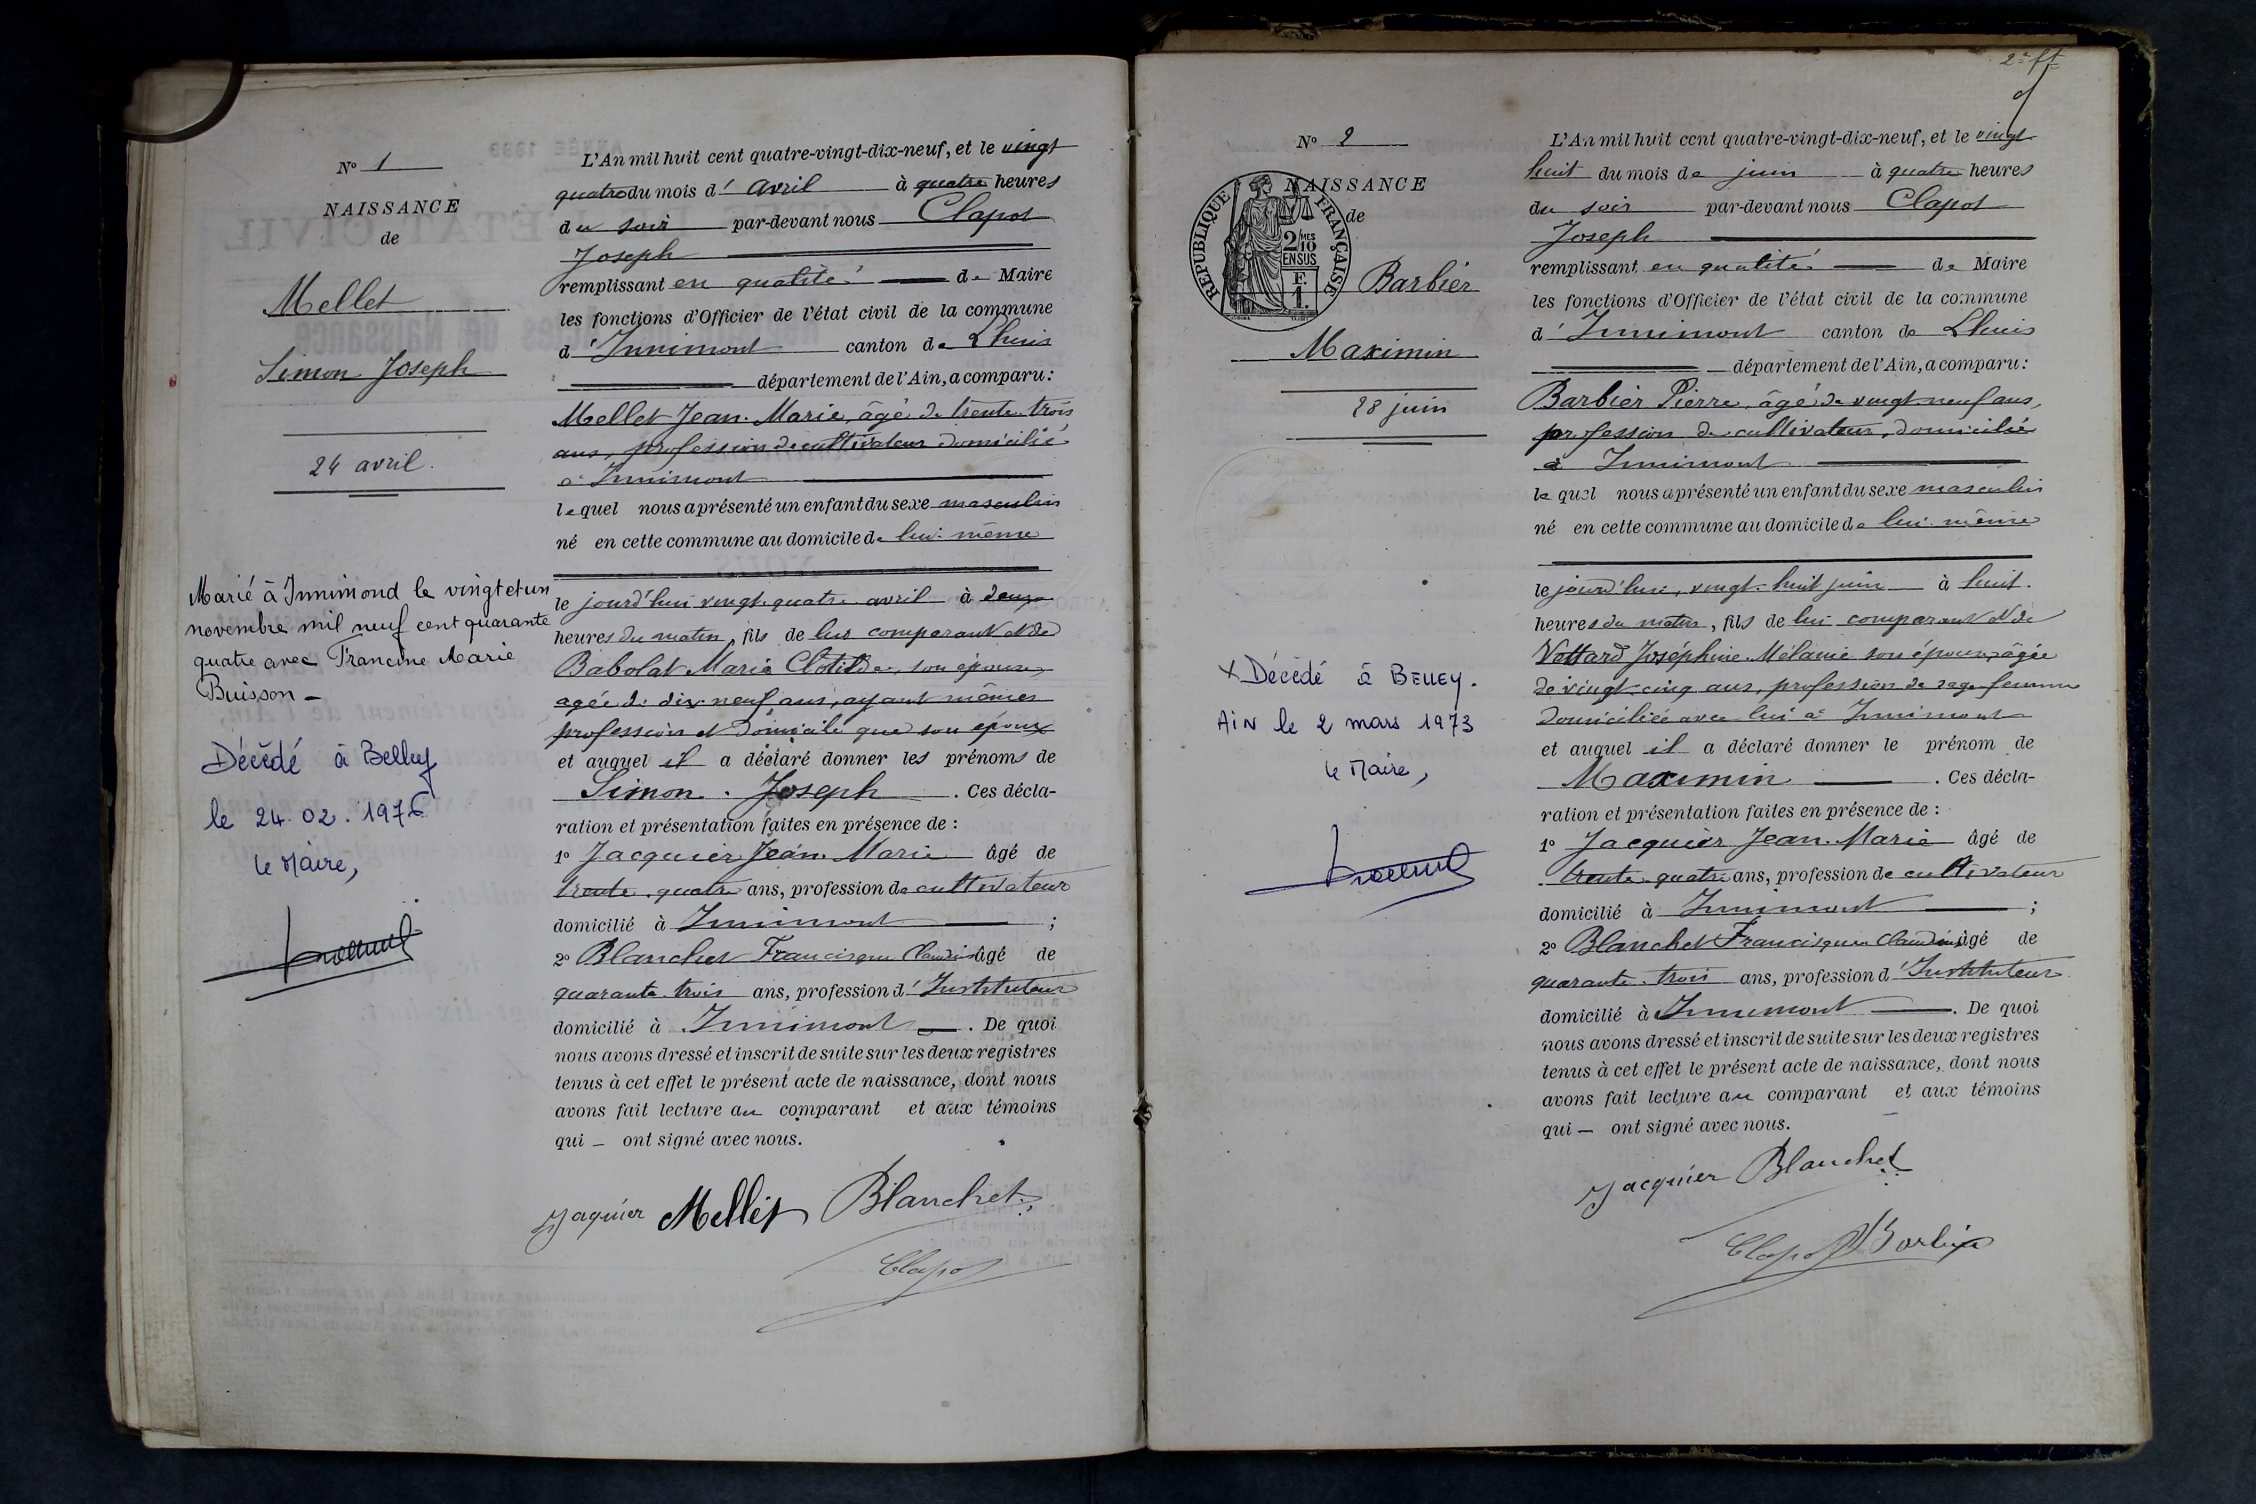 N° 1
NAISSANCE
de
Mellet
Simon Joseph
24 avril.
Marié à Innimond le vingt et un
novembre mil neuf cent quarante
quatre avec Francine Marie
Buisson -
Décédé à Belley
le 24.02.1976
le Maire,
L'An mil huit cent quatre-vingt-dix-neuf, et le vingt
quatre du mois d'avril à quatre heures
du soir par-devant nous Clapot
Joseph
remplissant en qualité de Maire
les fonctions d'Officier de l'état civil de la commune
d'Innimont canton de Lhuis
département de l'Ain, a comparu:
Mellet Jean-Marie, âgé de trente-trois
ans, profession de cultivateur domicilié
à Innimont
lequel nous a présenté un enfant du sexe masculin
né en cette commune au domicile de lui-même
le jourd'hui vingt-quatre avril à
heures du matin, fils de lui comparant et de
Babolat Maria Clotilde, son épouse,
agée de dix-neuf ans, ayant mêmes
profession et domicile que son époux
et auquel il a déclaré donner les prénoms de
Simon-Joseph. Ces décla-
ration et présentation faites en présence de :
1° Jacquier Jean-Marie âgé de
trente-quatre ans, profession de cultivateur
domicilié à Innimont ;
2° Blanchet Francisque Claudius âgé de
quarante-trois ans, profession d'Instituteur
domicilié à Innimont. De quoi
nous avons dressé et inscrit de suite sur les deux registres
tenus à cet effet le présent acte de naissance, dont nous
avons fait lecture au comparant et aux témoins
qui — ont signé avec nous.
Jaquier Mellet Blanchet
Clapot
2e ft
N° 2
NAISSANCE
de
RÉPUBLIQUE FRANÇAISE
2/10 MES
EN SUS
F.
1.
Barbier
Maximin
28 juin
X Décédé à BELLEY.
AiN le 2 mars 1973
le Maire,
L'An mil huit cent quatre-vingt-dix-neuf, et le vingt
huit du mois de juin à quatre heures
du soir par-devant nous Clapot
Joseph
remplissant en qualité de Maire
les fonctions d'Officier de l'état civil de la commune
d'Innimont canton de Lhuis
département de l'Ain, a comparu:
Barbier Pierre, âgé de vingt-neuf ans,
profession de cultivateur, domicilié
à Innimont
lequel nous a présenté un enfant du sexe masculin
né en cette commune au domicile de lui-même
le jourd'hui, vingt-huit juin à huit
heures du matin, fils de lui comparant et de
Vettard Joséphine-Mélanie son épouse, âgée
de vingt-cinq ans, profession de sage-femme
domiciliée avec lui à Innimont
et auquel il a déclaré donner le prénom de
Maximin. Ces décla-
ration et présentation faites en présence de :
1° Jacquier Jean-Marie âgé de
trente-quatre ans, profession de cultivateur
domicilié à Innimont ;
2° Blanchet Francisque Claudius âgé de
quarante-trois ans, profession d'Instituteur
domicilié à Innimont. De quoi
nous avons dressé et inscrit de suite sur les deux registres
tenus à cet effet le présent acte de naissance, dont nous
avons fait lecture au comparant et aux témoins
qui — ont signé avec nous.
Jacquier Blanchet
Clapot Barbier